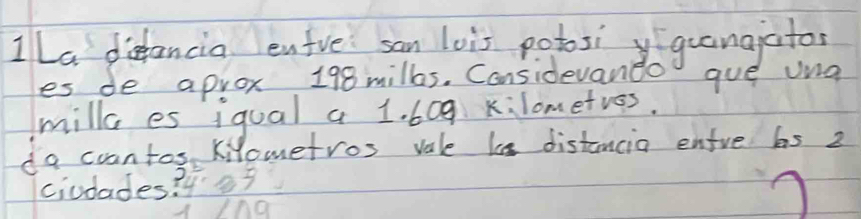 1 La distancia entre: san luis potosi y guanajatos
es de aprox 198 millas. Considerando que una
milla es igual a 1.609 kilometros.
¿a cuantos kilometros vale la distancia entre las 2
ciudades?
1 609